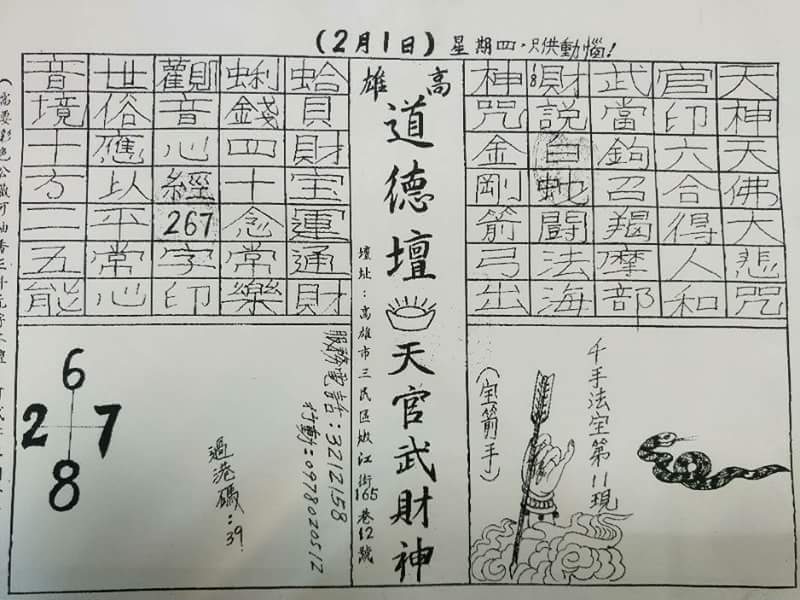 (2月1日) 星期四，只供動惱！
天神天佛大悲咒
官印六合得人和
武當鉤召羯摩部
財18說白蛇鬪法海
神咒金剛箭弓出
千手法宝第11現
(宝箭手)
高雄
道德壇
天官武財神
壇址：高雄市三民區嫩江街165巷12號
蛤貝財宝運通財
蜊錢四十念常樂
觀音心經267字印
世俗應以平常心
音境十方二五能
服務電話：3212158
行動：0978020512
過港碼：39
6
2 7
8